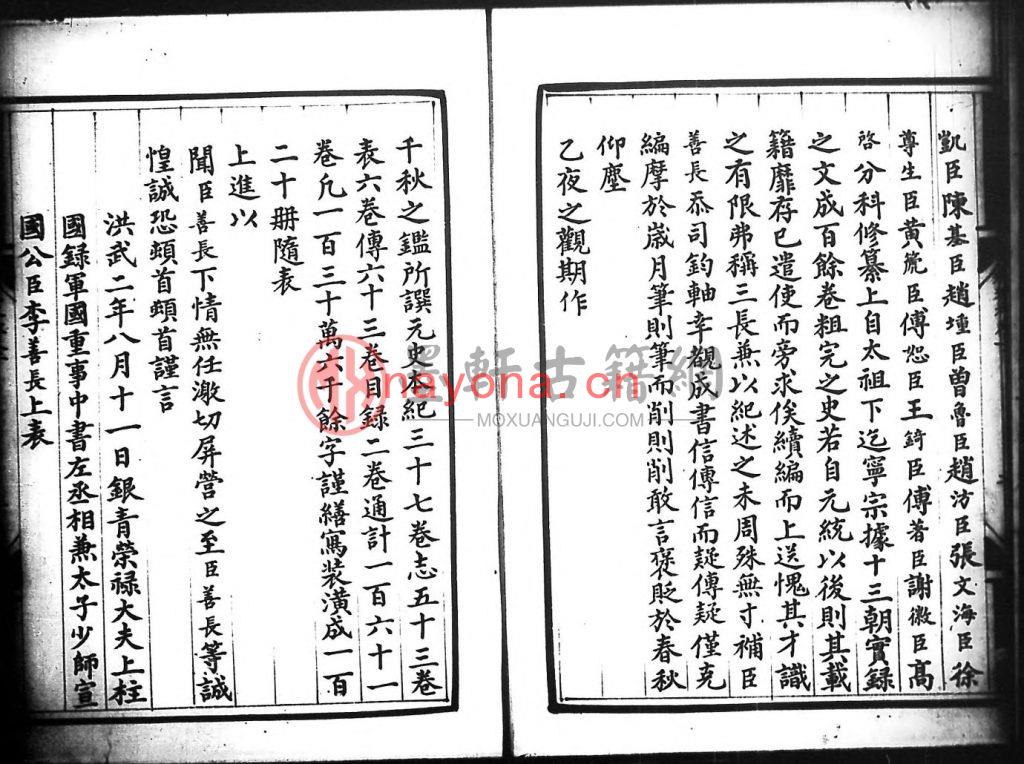 凱臣陳基臣趙壎臣曾魯臣趙汸臣張文海臣徐
尊生臣黃箎臣傅恕臣王錡臣傅著臣謝徽臣高
啓分科修纂上自太祖下迄寧宗據十三朝實錄
之文成百餘卷粗完之史若自元統以後則其載
籍靡存已遣使而旁求俟續編而上送愧其才識
之有限弗稱三長兼以紀述之未周殊無寸補臣
善長忝司鈞軸幸覩成書信傳信而疑傳疑僅克
編摩於歲月筆則筆而削則削敢言褒貶於春秋
仰塵
乙夜之觀期作
千秋之鑑所譔元史本紀三十七卷志五十三卷
表六卷傳六十三卷目録二卷通計一百六十一
卷凢一百三十萬六千餘字謹繕寫裝潢成一百
二十册隨表
上進以
聞臣善長下情無任激切屏營之至臣善長等誠
惶誠恐頓首頓首謹言
洪武二年八月十一日銀青榮禄大夫上柱
國録軍國重事中書左丞相兼太子少師宣
國公臣李善長上表
墨軒古籍網
nayona.cn
MOXUANGUJI.COM